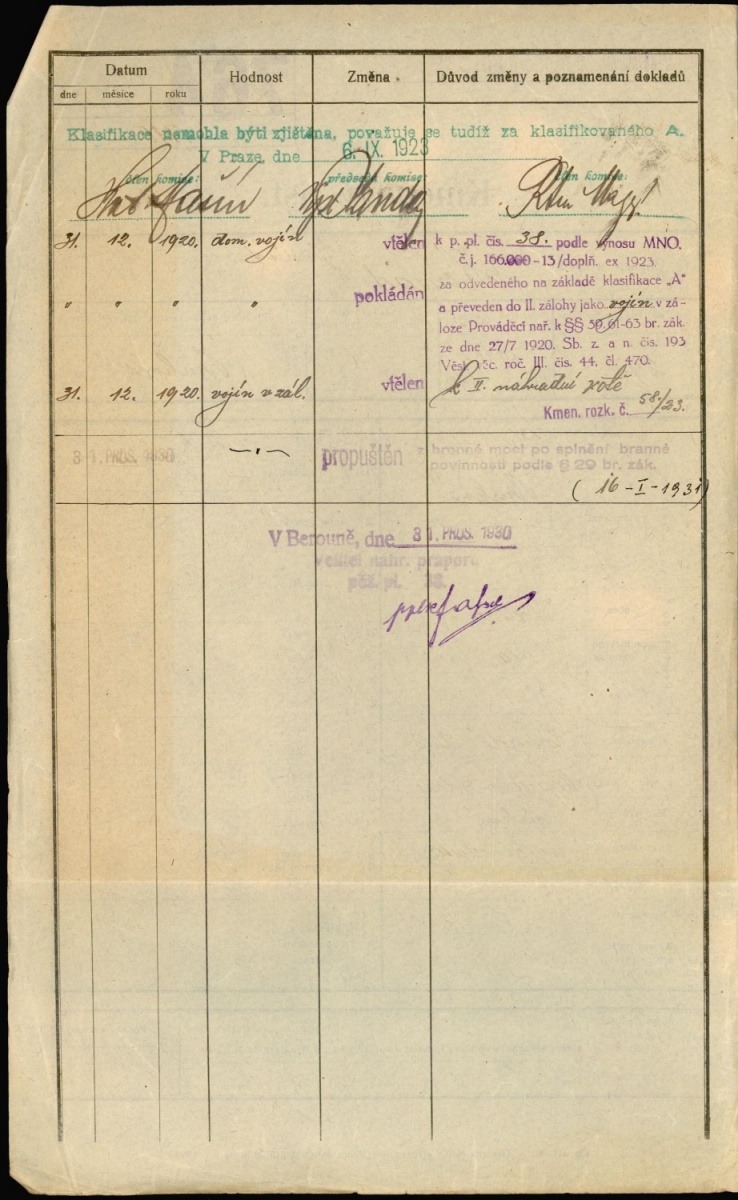 Datum Hodnost Změna Důvod změny a poznamenání dokladů
dne měsíce roku
Klasifikace nemohla býti zjištěna, považuje se tudíž za klasifikovaného A.
V Praze, dne 6. IX. 1923
člen komise: předseda komise: člen komise:
31. 12. 1920. dom. vojín vtělen k p. pl. čís. 38. podle výnosu MNO.
č.j. 166.000-13/doplň. ex 1923.
za odvedeného na základě klasifikace „A"
" " " " pokládán a převeden do II. zálohy jako vojín v zá-
loze Prováděcí nař. k §§ 59, 61-63 br. zák.
ze dne 27/7 1920. Sb. z. a n. čís. 193
Věst. věc. roč. III. čís. 44, čl. 470.
31. 12. 1920. vojín v zál. vtělen k II. náhradní rotě
Kmen. rozk. č. 58./23.
31. PROS. 1930 —"— propuštěn z branné moci po splnění branné
povinnosti podle § 29 br. zák.
(16-I-1931)
V Berouně, dne 31. PROS. 1930
Velitel náhr. praporu
pěš. pl. 38.